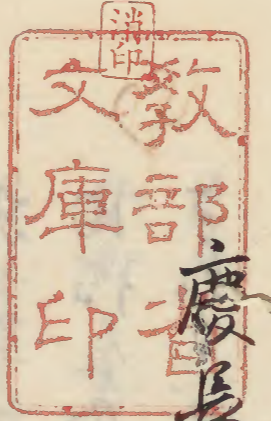 消印
教部省
文庫印
慶長